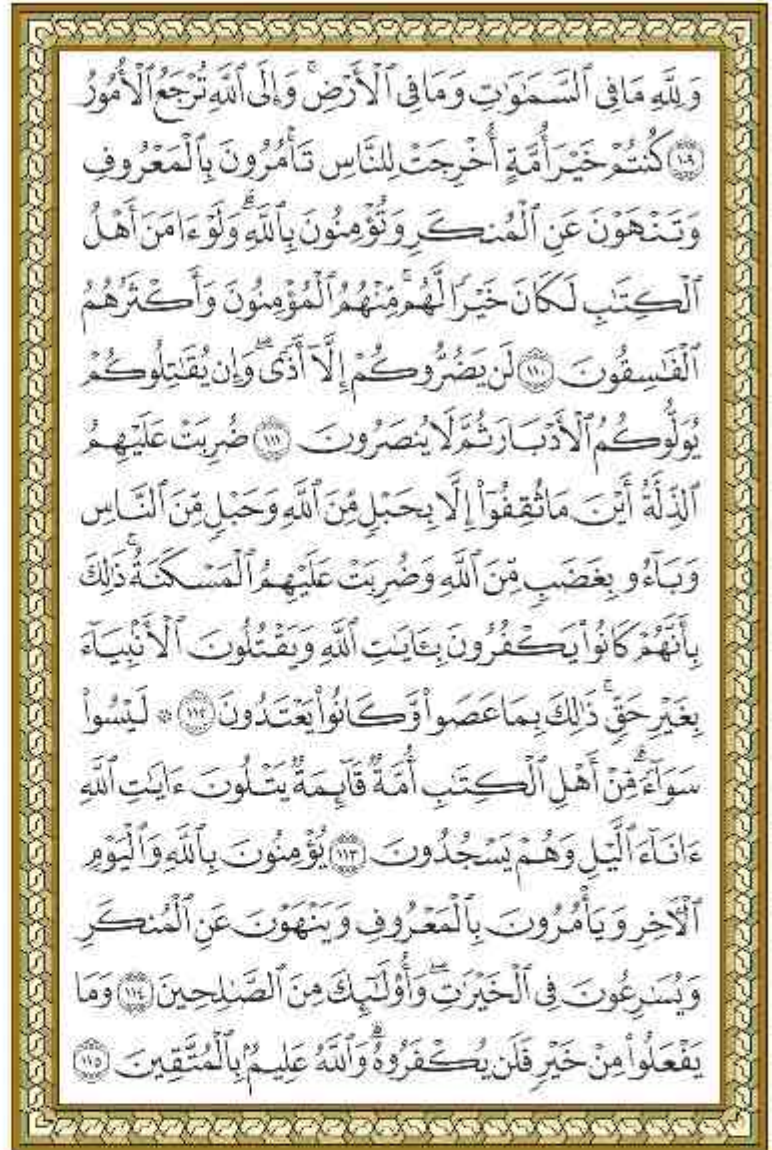 وَلِلَّهِ مَا فِي ٱلسَّمَٰوَٰتِ وَمَا فِي ٱلْأَرْضِۚ وَإِلَى ٱللَّهِ تُرْجَعُ ٱلْأُمُورُ
١٠٩ كُنتُمْ خَيْرَ أُمَّةٍ أُخْرِجَتْ لِلنَّاسِ تَأْمُرُونَ بِٱلْمَعْرُوفِ
وَتَنْهَوْنَ عَنِ ٱلْمُنكَرِ وَتُؤْمِنُونَ بِٱللَّهِۗ وَلَوْ ءَامَنَ أَهْلُ
ٱلْكِتَٰبِ لَكَانَ خَيْرًا لَّهُمۚ مِّنْهُمُ ٱلْمُؤْمِنُونَ وَأَكْثَرُهُمُ
ٱلْفَٰسِقُونَ ١١٠ لَن يَضُرُّوكُمْ إِلَّآ أَذًىۖ وَإِن يُقَٰتِلُوكُمْ
يُوَلُّوكُمُ ٱلْأَدْبَارَ ثُمَّ لَا يُنصَرُونَ ١١١ ضُرِبَتْ عَلَيْهِمُ
ٱلذِّلَّةُ أَيْنَ مَا ثُقِفُوٓا۟ إِلَّا بِحَبْلٍ مِّنَ ٱللَّهِ وَحَبْلٍ مِّنَ ٱلنَّاسِ
وَبَآءُو بِغَضَبٍ مِّنَ ٱللَّهِ وَضُرِبَتْ عَلَيْهِمُ ٱلْمَسْكَنَةُۚ ذَٰلِكَ
بِأَنَّهُمْ كَانُوا۟ يَكْفُرُونَ بِـَٔايَٰتِ ٱللَّهِ وَيَقْتُلُونَ ٱلْأَنۢبِيَآءَ
بِغَيْرِ حَقٍّۚ ذَٰلِكَ بِمَا عَصَوا۟ وَّكَانُوا۟ يَعْتَدُونَ ١١٢ ۞ لَيْسُوا۟
سَوَآءًۗ مِّنْ أَهْلِ ٱلْكِتَٰبِ أُمَّةٌ قَآئِمَةٌ يَتْلُونَ ءَايَٰتِ ٱللَّهِ
ءَانَآءَ ٱلَّيْلِ وَهُمْ يَسْجُدُونَ ١١٣ يُؤْمِنُونَ بِٱللَّهِ وَٱلْيَوْمِ
ٱلْءَاخِرِ وَيَأْمُرُونَ بِٱلْمَعْرُوفِ وَيَنْهَوْنَ عَنِ ٱلْمُنكَرِ
وَيُسَٰرِعُونَ فِي ٱلْخَيْرَٰتِۖ وَأُو۟لَٰٓئِكَ مِنَ ٱلصَّٰلِحِينَ ١١٤ وَمَا
يَفْعَلُوا۟ مِنْ خَيْرٍ فَلَن يُكْفَرُوهُۗ وَٱللَّهُ عَلِيمٌۢ بِٱلْمُتَّقِينَ ١١٥